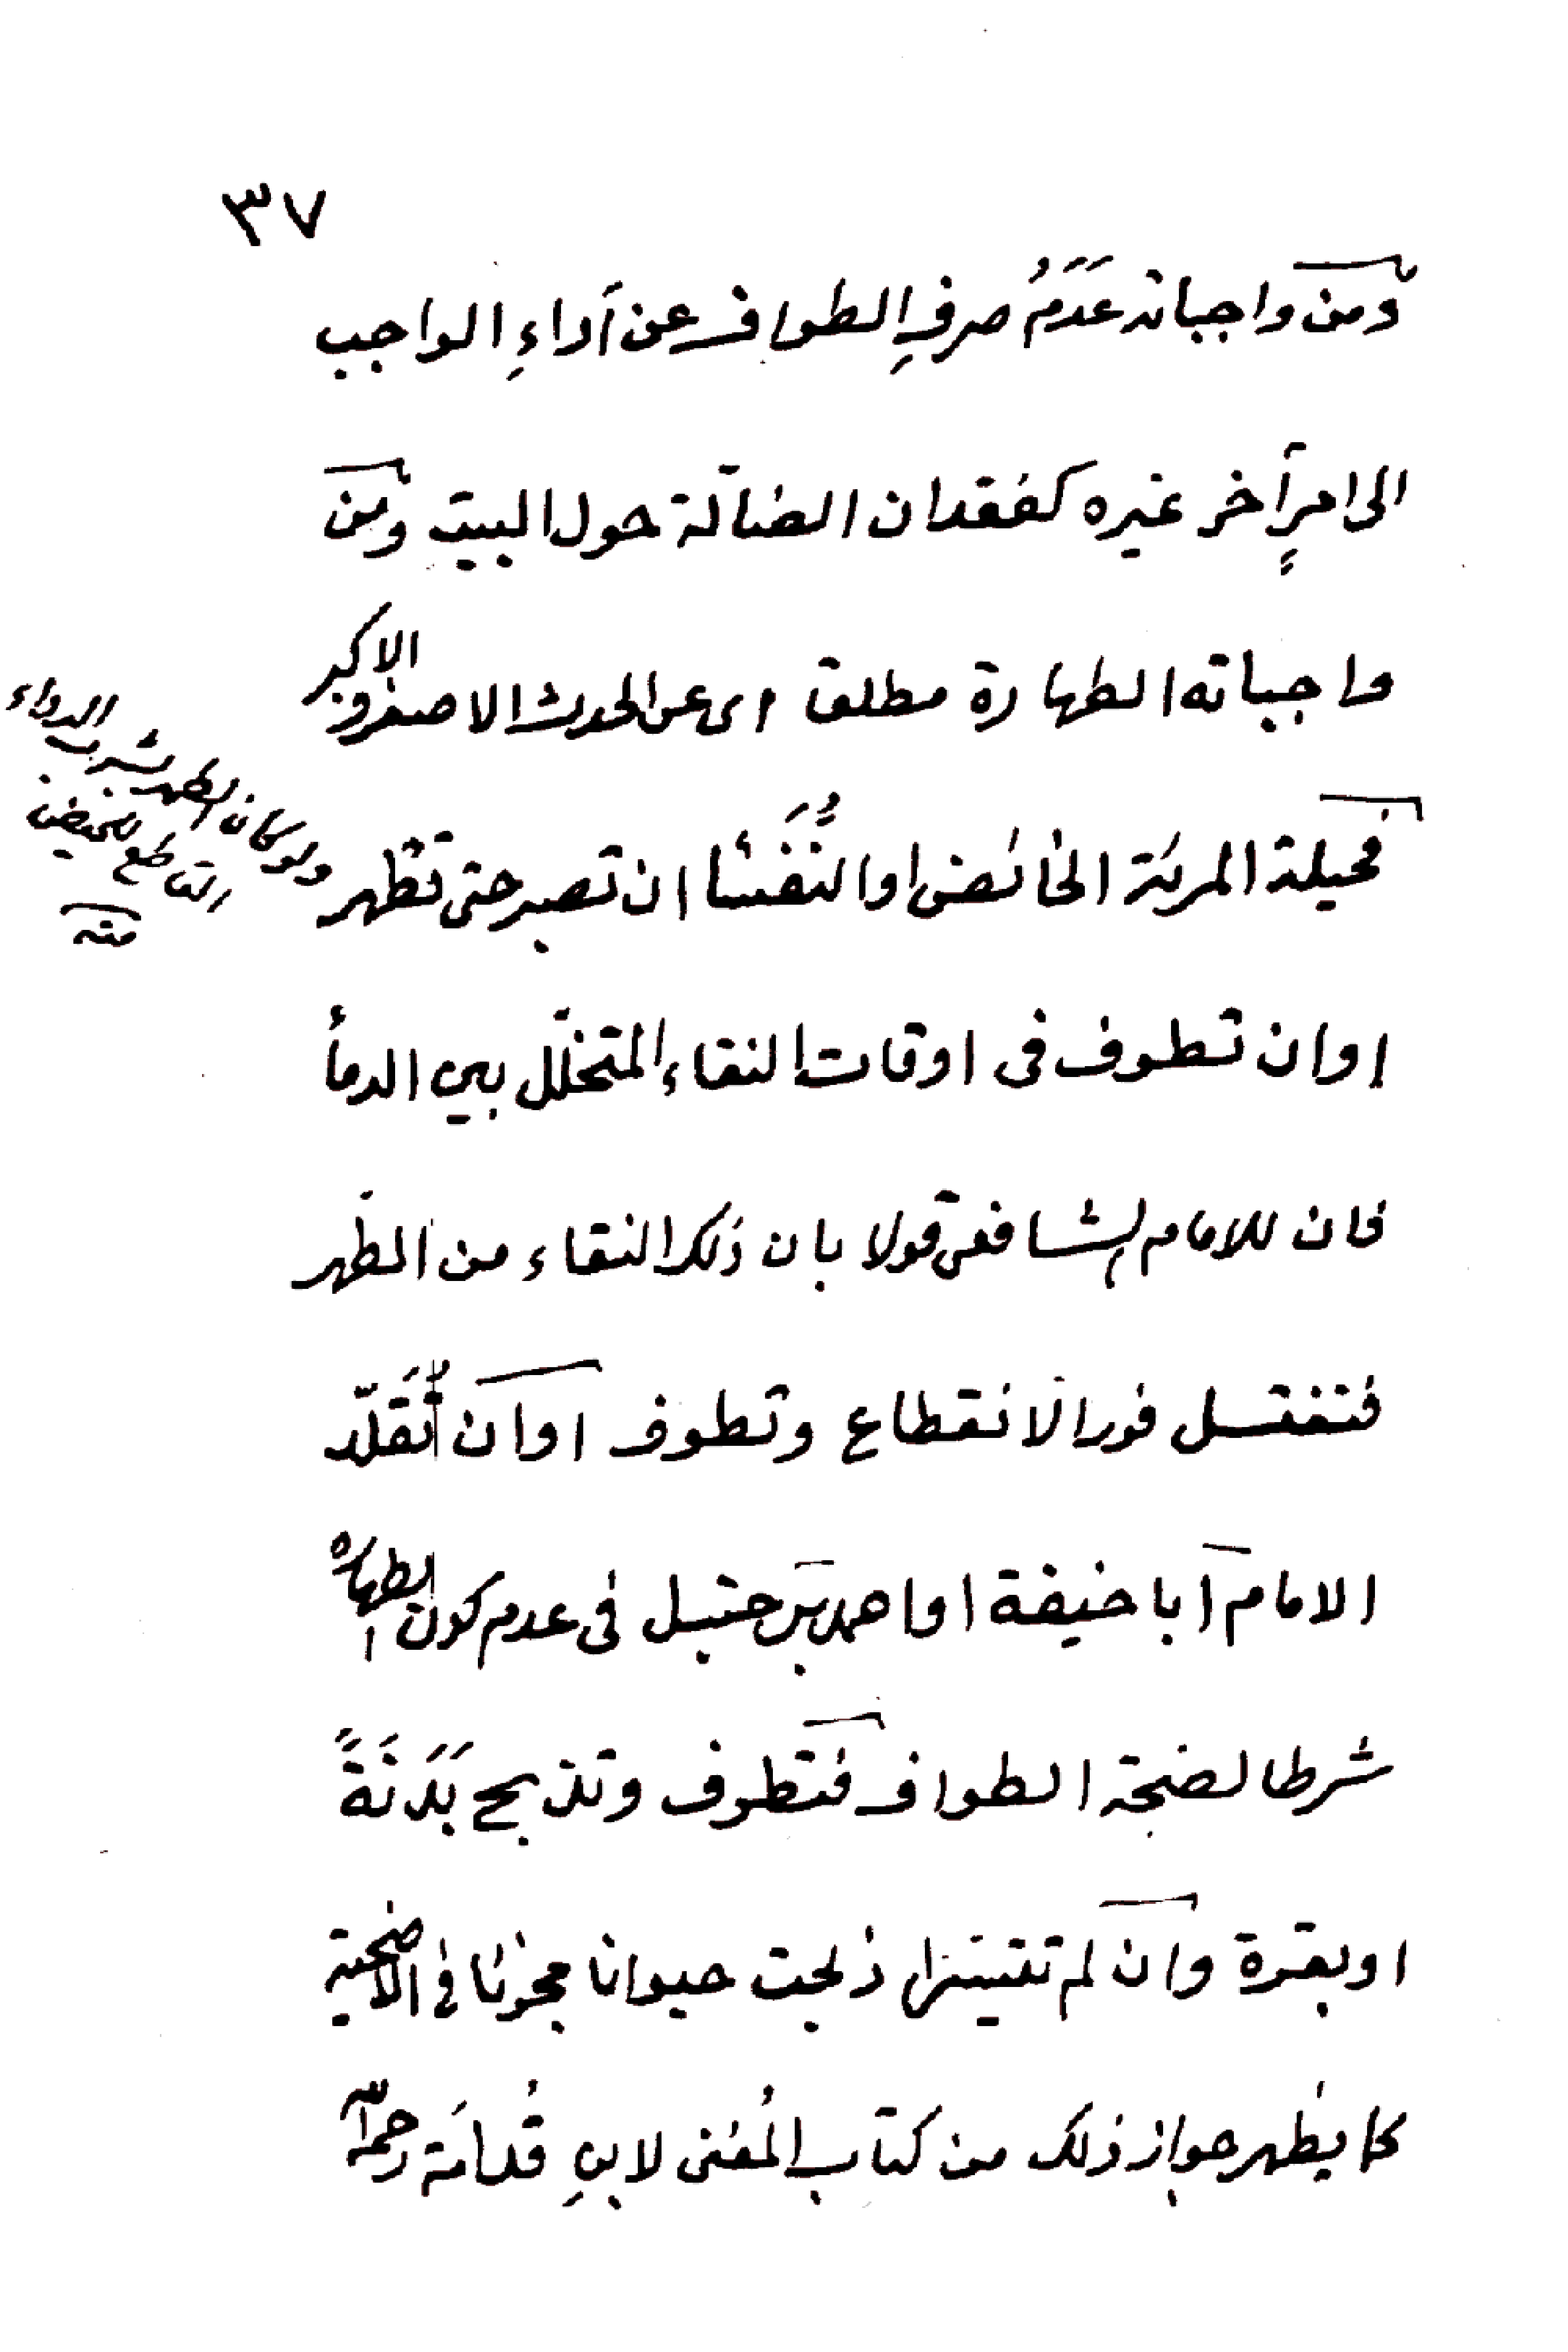 ٣٧
ومن واجباته عَدَمُ صرفِ الطواف عن أَداءِ الواجب
الى امرٍ آخر غيره كفقدان الضآلة حول البيت ومن
واجباته الطهارة مطلقا اى عن الحدث الاصغر والاكبر
فحيلة المرئة الحائض او النُّفَسْا ان تصبر حتى تطهر
ولو كان الطهر بشرب الدواء
القاطع للحيض
منه
او ان تطوف فى اوقات النقاء المتخلّل بين الدمأ
فان للامام الشافعى قولا بان ذلك النقاء من الطّهر
فتغتسل فور الانقطاع وتطوف او ان تُقَلّد
الامام ابا حنيفة او احمد بن حنبل فى عدم كون الطهارة
شرطا لصحة الطواف فتطوف وتذبح بَدَنَةً
او بقرة وان لم تتيسّرا ذبحت حيوانا مجزئا فى الاضحية
كما يظهر جواز ذلك من كتاب المُغنى لابنِ قُدامَة رحمه الله